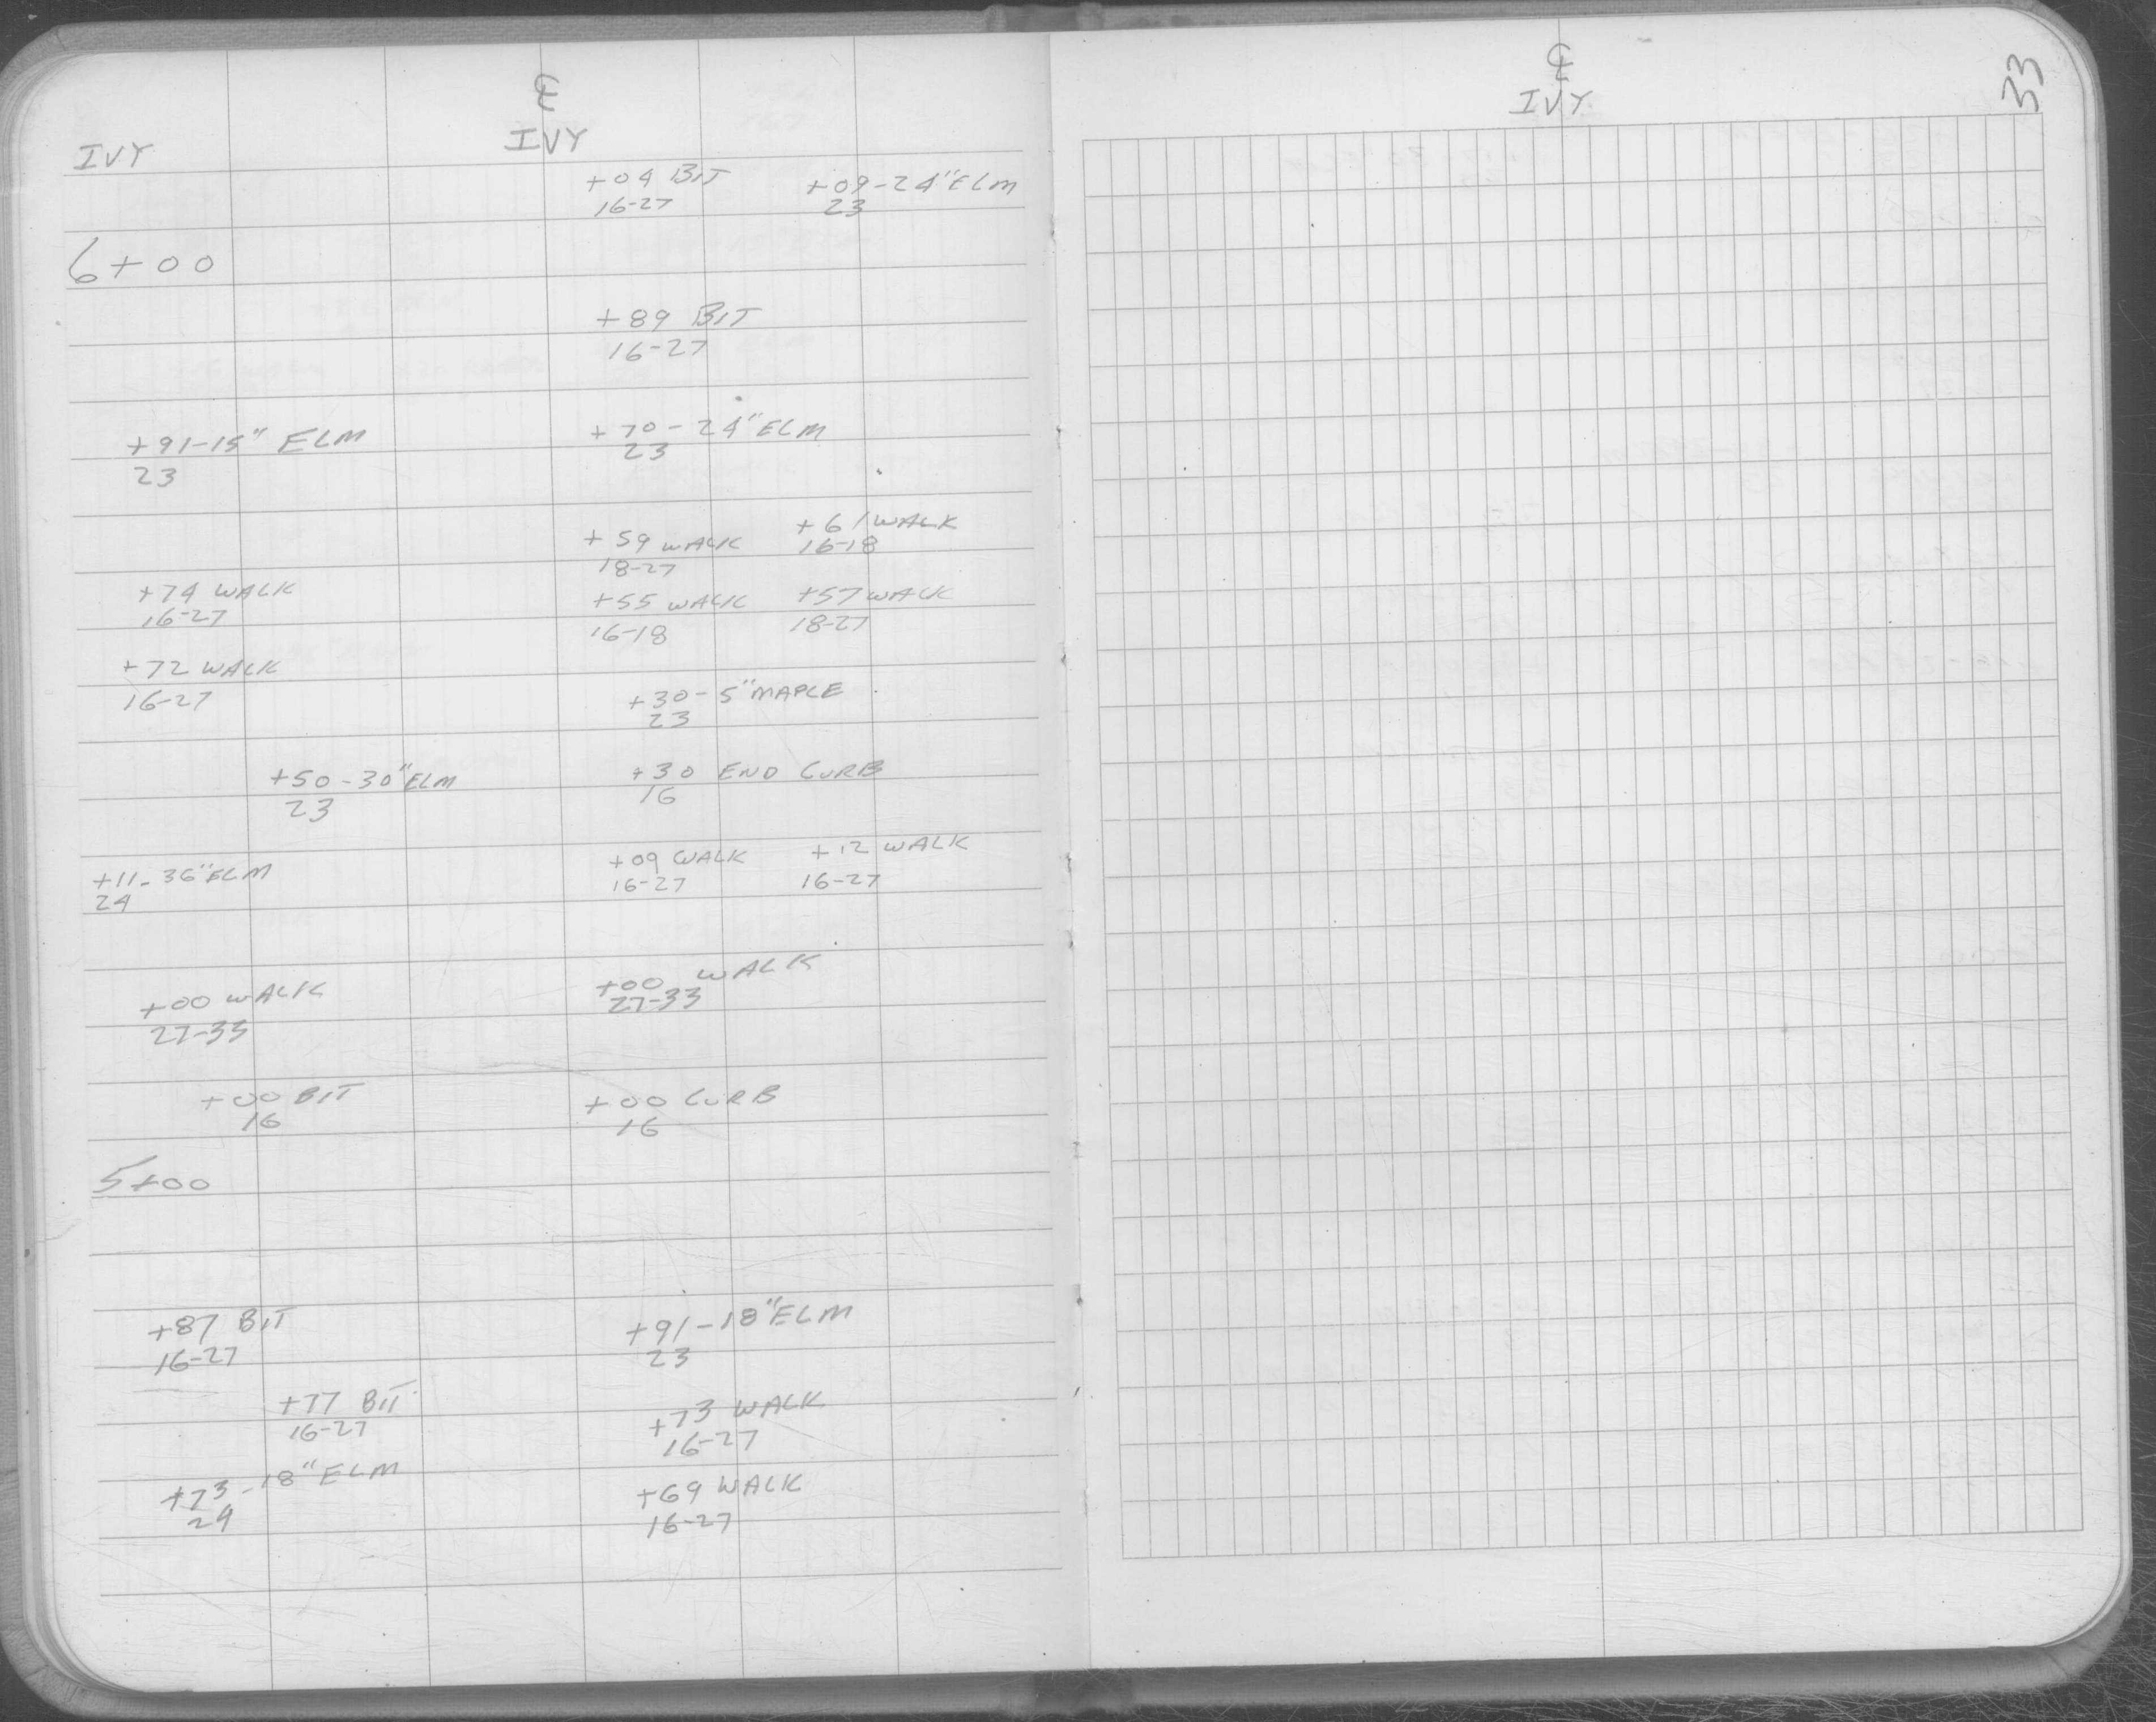 ℄
IVY
IVY
+04 BIT
16-27
+09-24" ELM
23
6+00
+89 BIT
16-27
+91-15" ELM
23
+70-24" ELM
23
+59 WALK
18-27
+61 WALK
16-18
+74 WALK
16-27
+55 WALK
16-18
+57 WALK
18-27
+72 WALK
16-27
+30-5" MAPLE
23
+50-30" ELM
23
+30 END CURB
16
+11-36" ELM
24
+09 WALK
16-27
+12 WALK
16-27
+00 WALK
27-33
+00 WALK
27-33
+00 BIT
16
+00 CURB
16
5+00
+87 BIT
16-27
+91-18" ELM
23
+77 BIT
16-27
+73 WALK
16-27
+73-18" ELM
24
+69 WALK
16-27
℄
IVY
33